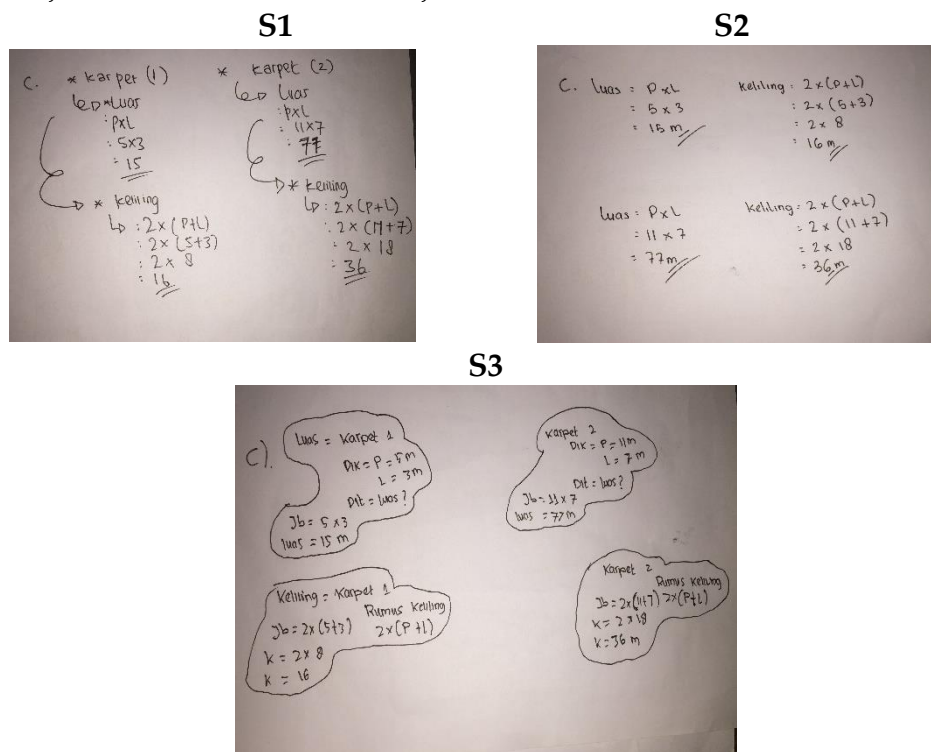 S1
C. * Karpet (1)
*Luas
: PxL
: 5x3
: 15
* Keliling
: 2x(P+L)
: 2x(5+3)
: 2x 8
: 16
* Karpet (2)
Luas
: pxL
: 11x7
: 77
* Keliling
: 2x(P+L)
: 2x(11+7)
: 2x18
: 36
S2
C. Luas = PxL
= 5 x 3
= 15 m
Keliling = 2x(P+L)
: 2x (5+3)
: 2x 8
: 16 m
Luas = PxL
= 11 x 7
= 77m
Keliling = 2x(P+L)
= 2x (11+7)
= 2x18
= 36m
S3
C).
Luas = Karpet 1
Dik = P = 5m
L = 3m
Dit = luas?
Jb = 5 x3
luas = 15 m
Karpet 2
Dik = P = 11m
L = 7m
Dit = luas?
Jb = 11 x7
luas = 77m
Keliling = Karpet 1
Rumus Keliling
Jb = 2x(5+3) 2x(P+L)
k = 2x 8
k = 16
Karpet 2
Rumus Keliling
Jb = 2x(11+7) 2x(P+L)
k = 2x18
k = 36 m